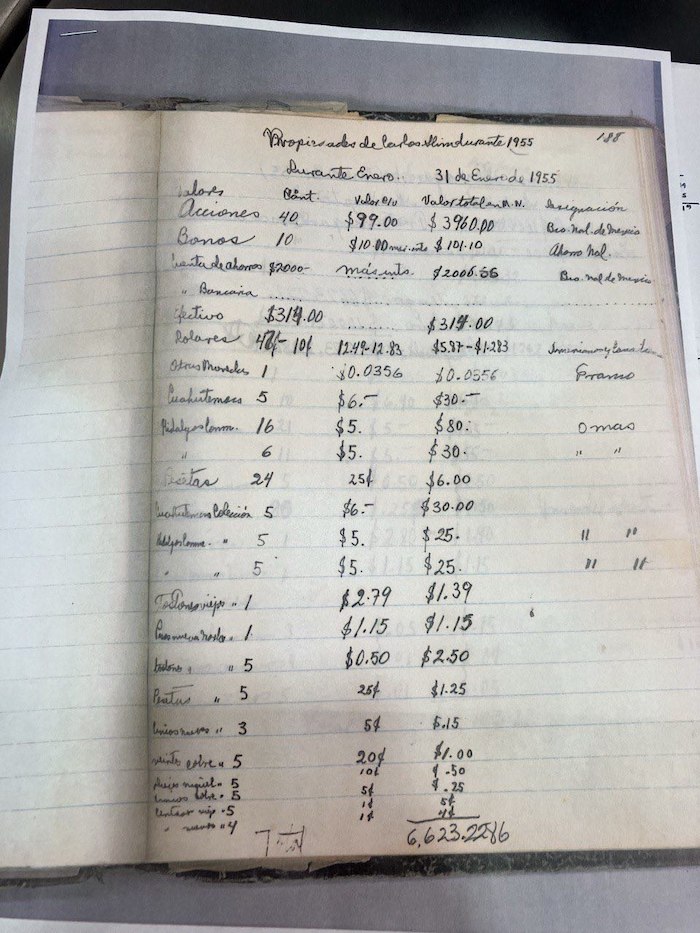 Propiedades de Carlos Slim durante 1955 188
Durante Enero. 31 de Enero de 1955
Valores Cant. Valor c/u Valor total en M.N. Designación
Acciones 40. $99.00 $3960.00 Bco. Nal. de Mexico
Bonos 10 $10.00 $101.10 Ahorro Nal.
Cuenta de ahorros $2000- más ints. $2006.66 Bco. Nal de Mexico
" Bancaria
Efectivo $314.00 $314.00
Dolares 12.49-12.83 $5.87-$1.283
Otras Monedas 1 $0.0356 $0.0356 Franco
Cuahutemocs 5 $6.- $30.-
Hidalgos Conm. 16 $5. $80.- o mas
" 6 $5. $30. " "
Pesetas 24 25¢ $6.00
Cuauhtemocs Colección 5 $6.- $30.00
Hidalgos Conm. " 5 $5. $25. " "
" " 5 $5. $25. " "
Tostones viejos " 1 $2.79 $1.39
" 1 $1.15 $1.15
tostones " " 5 $0.50 $2.50
Pesetas " 5 25¢ $1.25
cincos nuevos " 3 5¢ $.15
veintes cobre " 5 20¢ $1.00
dieces niquel " 5 10¢ $.50
cincos cobre " 5 5¢ $.25
centavos viej. " 5 1¢ 5¢
" nuevos " 4 1¢ 4¢
Total 6,623.2286